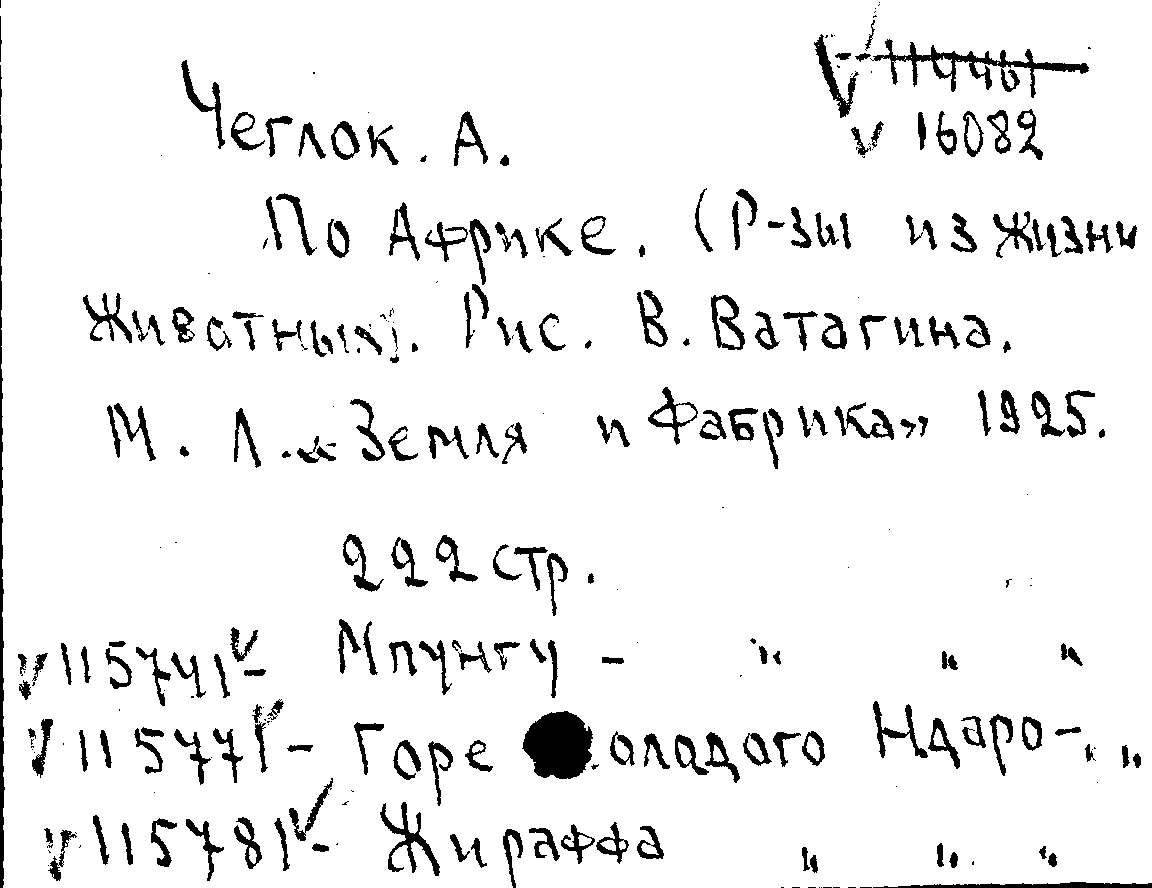 114461
Чеглок. А. 16082
По Африке. (Р-зы из жизни
животных). Рис. В. Ватагина.
М. Л. «Земля и Фабрика» 1925.
222 стр.
v 115741 v - Мпунгу - " " "
v 115771 v - Горе олодого Ндаро - " "
v 115781 v - Жираффа " " "